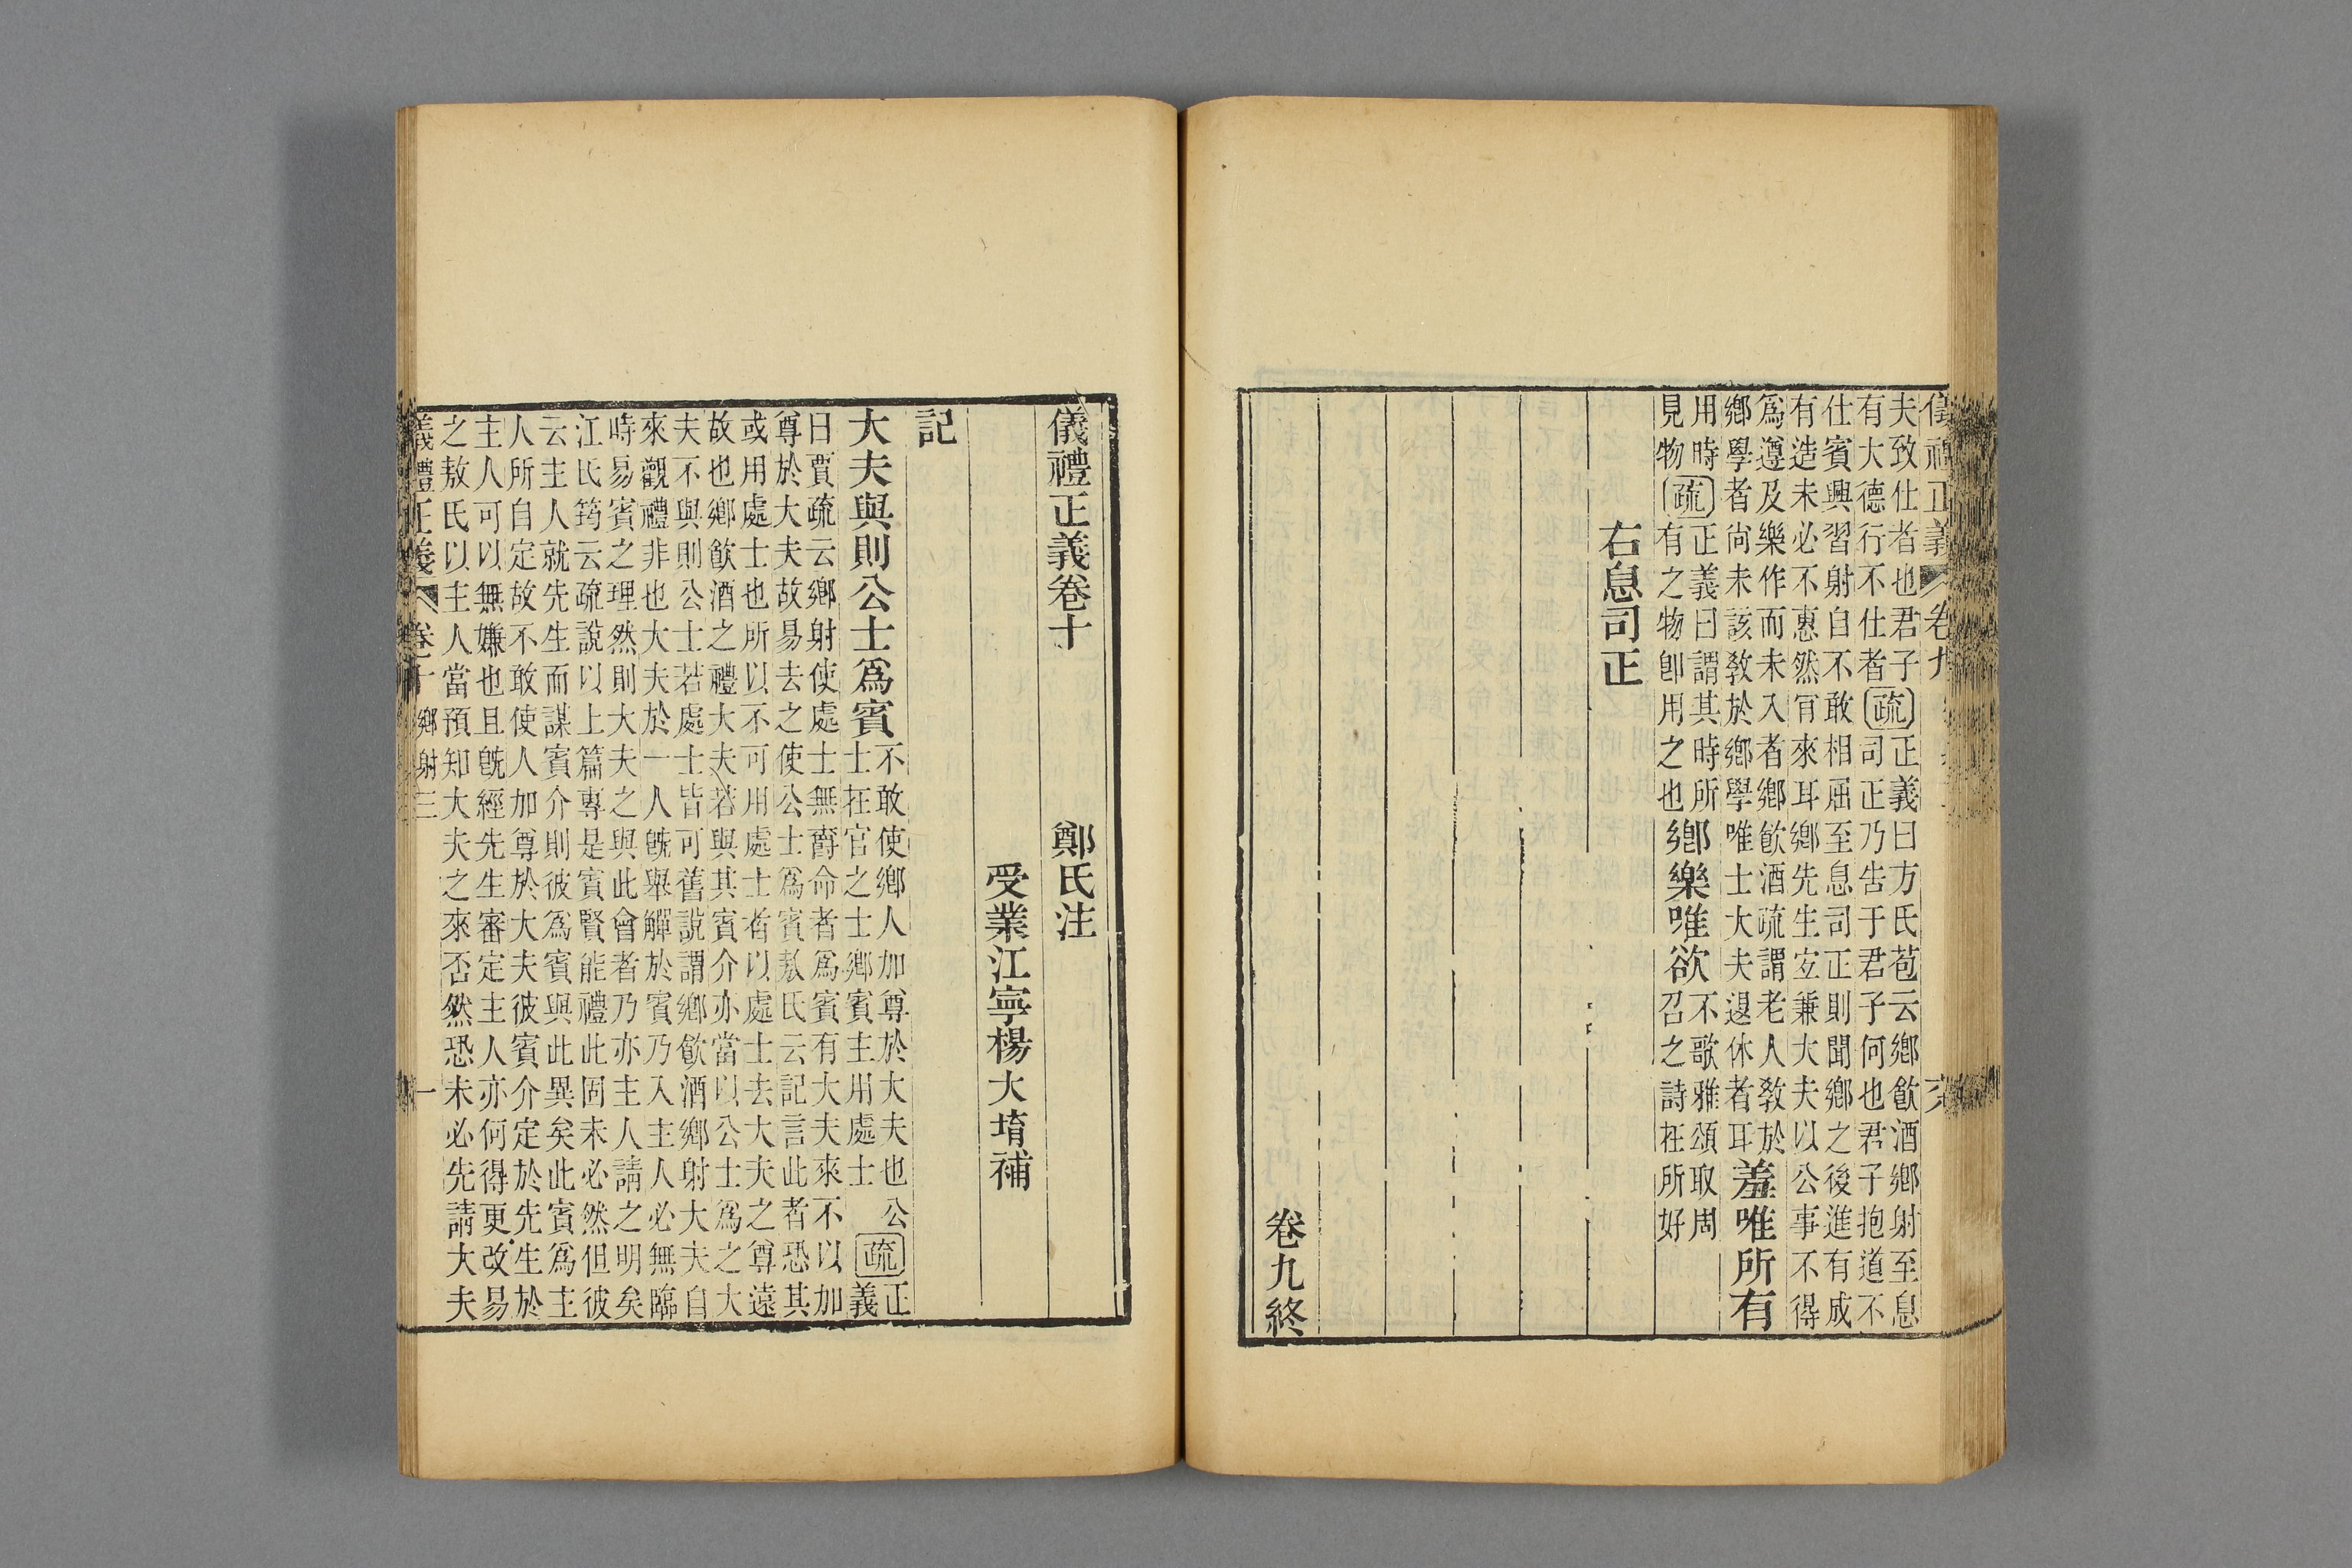 儀禮正義 卷九
夫致仕者也君子
有大德行不仕者
疏
正義曰方氏苞云鄉飲酒鄉射至息
司正乃告于君子何也君子抱道不
仕賓興習射自不敢相屈至息司正則聞鄉之後進有成
有造未必不惠然肎來耳鄉先生玄兼大夫以公事不得
爲遵及樂作而未入者鄉飲酒疏謂老人敎於
鄉學者尚未該敎於鄉學唯士大夫退休者耳
羞唯所有
用時
見物
疏
正義曰謂其時所
有之物卽用之也
鄉樂唯欲
不歌雅頌取周
召之詩在所好
右息司正
卷九終
儀禮正義卷十 鄭氏注
受業江寧楊大堉補
記
大夫與則公士爲賓
不敢使鄉人加尊於大夫也公
士在官之士鄉賓主用處士
疏
正
義
曰賈疏云鄉射使處士無爵命者爲賓有大夫來不以加
尊於大夫故易去之使公士爲賓敖氏云記言此者恐其
或用處士也所以不可用處士者以處士去大夫之尊遠
故也鄉飲酒之禮大夫若與其賓介亦當以公士爲之大
夫不與則公士若處士皆可舊說謂鄉飲酒鄉射大夫自
來觀禮非也大夫於一人旣舉觶於賓乃入主人必無臨
時易賓之理然則大夫之與此會者乃亦主人請之明矣
江氏筠云疏說以上篇專是賓賢能禮此固未必然但彼
云主人就先生而謀賓介則彼爲賓與此異矣此賓爲主
人所自定故不敢使人加尊於大夫彼賓介定於先生於
主人可以無嫌也且旣經先生審定主人亦何得更改易
之敖氏以主人當預知大夫之來否然恐未必先請大夫
儀禮正義 卷十 鄉射三 一